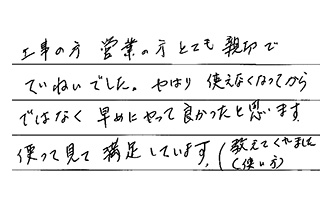 工事の方 営業の方 とても 親切で
ていねいでした。やはり 使えなくなってから
ではなく 早めにやって良かったと思います
使って見て 満足しています。(教えてくれました
(使い方)